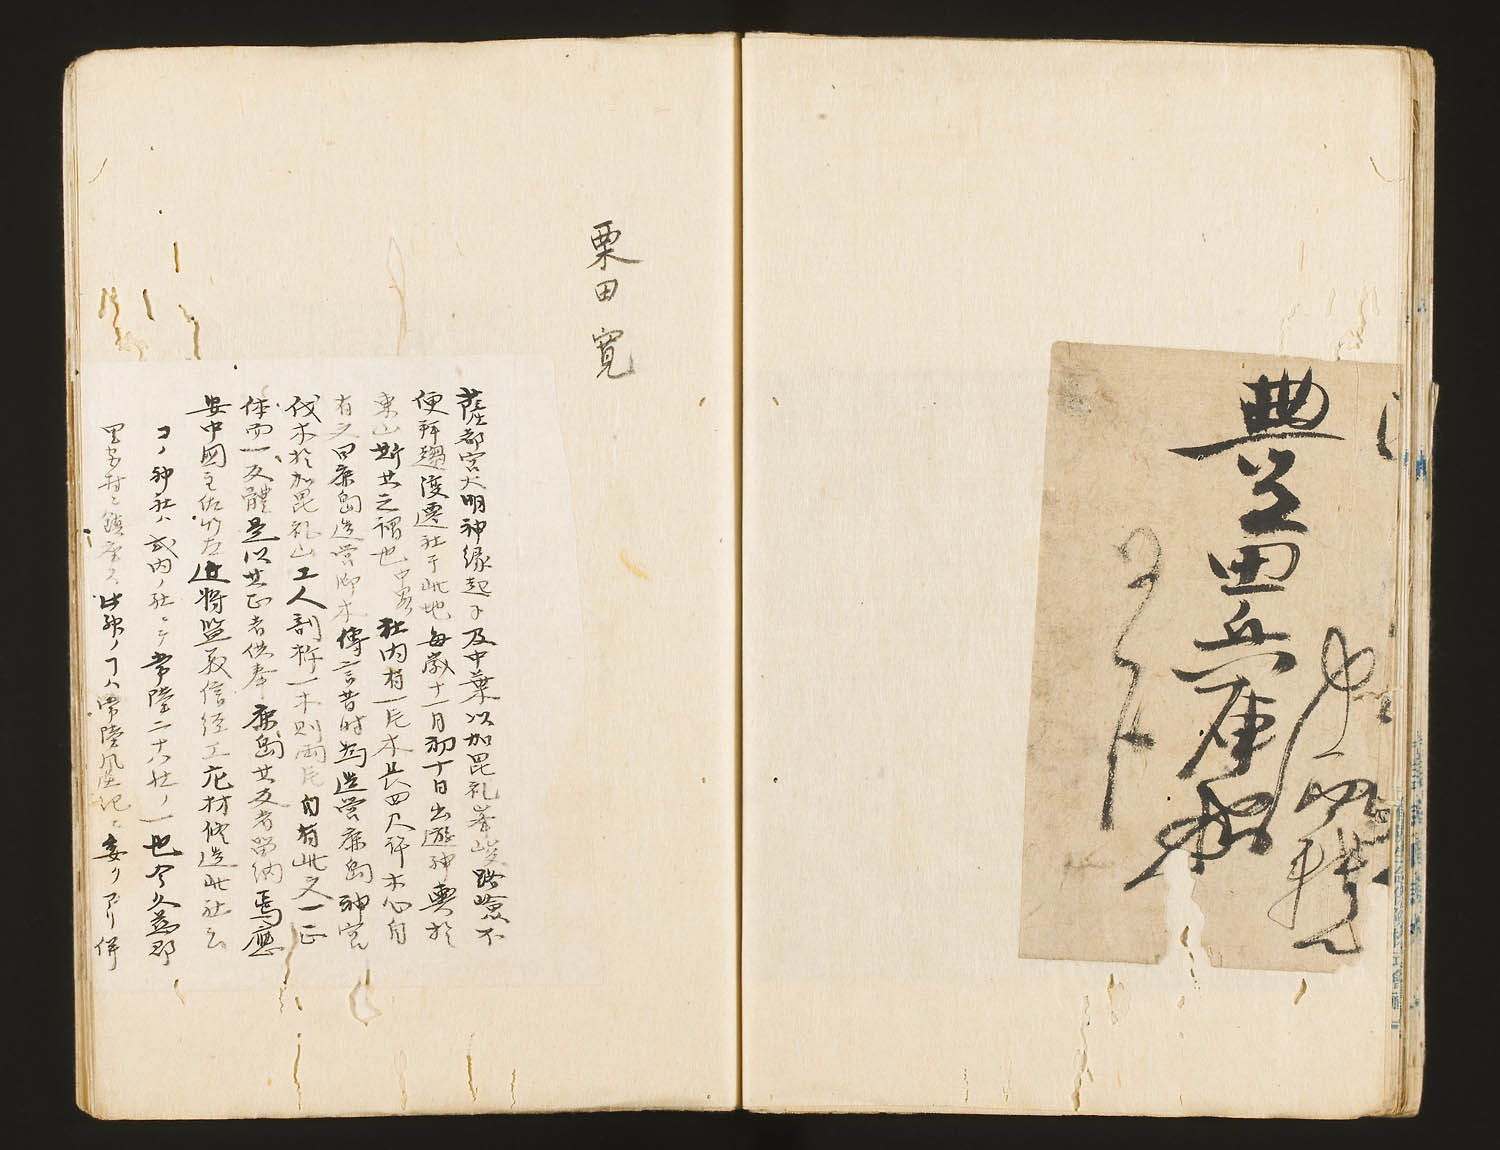 豊田兵庫
栗田寛
薩都宮大明神縁起ニ及中葉以加毘礼峯峻路嶮不
便拝趨復遷社于此地毎歳十一月初十日出遊神輿於
東山斯其之謂也中畧社内有一片木長四尺許木心自
有文曰鹿島造営御木傳言昔時為造営鹿島神宮
伐木於加毘礼山工人割柞一木則両片自有此文一正
体而一反體是以其正者供奉鹿島其反者留納焉應
安中國主佐竹左近将監義信経工庀材修造此社云
コノ神社ハ式内ノ社ニテ常陸二十八社ノ一也今久慈郡
里野村ニ鎮座ス此神ノコハ常陸風土記ニ委クアリ併